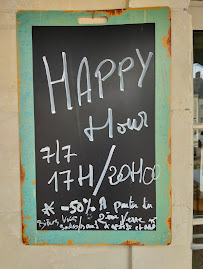 HAPPY
Hour
7/7
17H/20H00
* -50% A partir du
2ème Verre